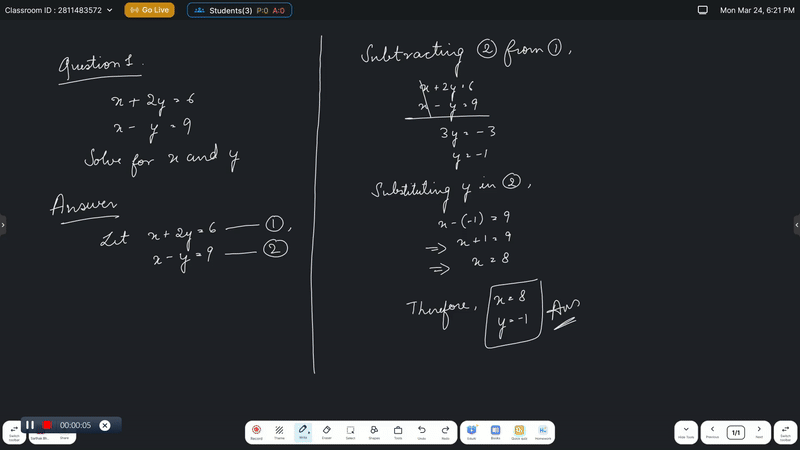 Classroom ID : 2811483572
Go Live
Students(3) P:0 A:0
Mon Mar 24, 6:21 PM
Question 1.
x + 2y = 6
x - y = 9
Solve for x and y
Answer
Let x + 2y = 6 —— ①,
x - y = 9 —— ②
Subtracting ② from ①,
x + 2y = 6
x - y = 9
3y = -3
y = -1
Substituting y in ②,
x - (-1) = 9
=> x + 1 = 9
=> x = 8
Therefore, x = 8
y = -1 Ans
00:00:05
Switch
Toolbar
Share
Record
Theme
Write
Eraser
Select
Shapes
Tools
Undo
Redo
Books
Quick quiz
Homework
Previous
1/1
Next
Switch
Toolbar